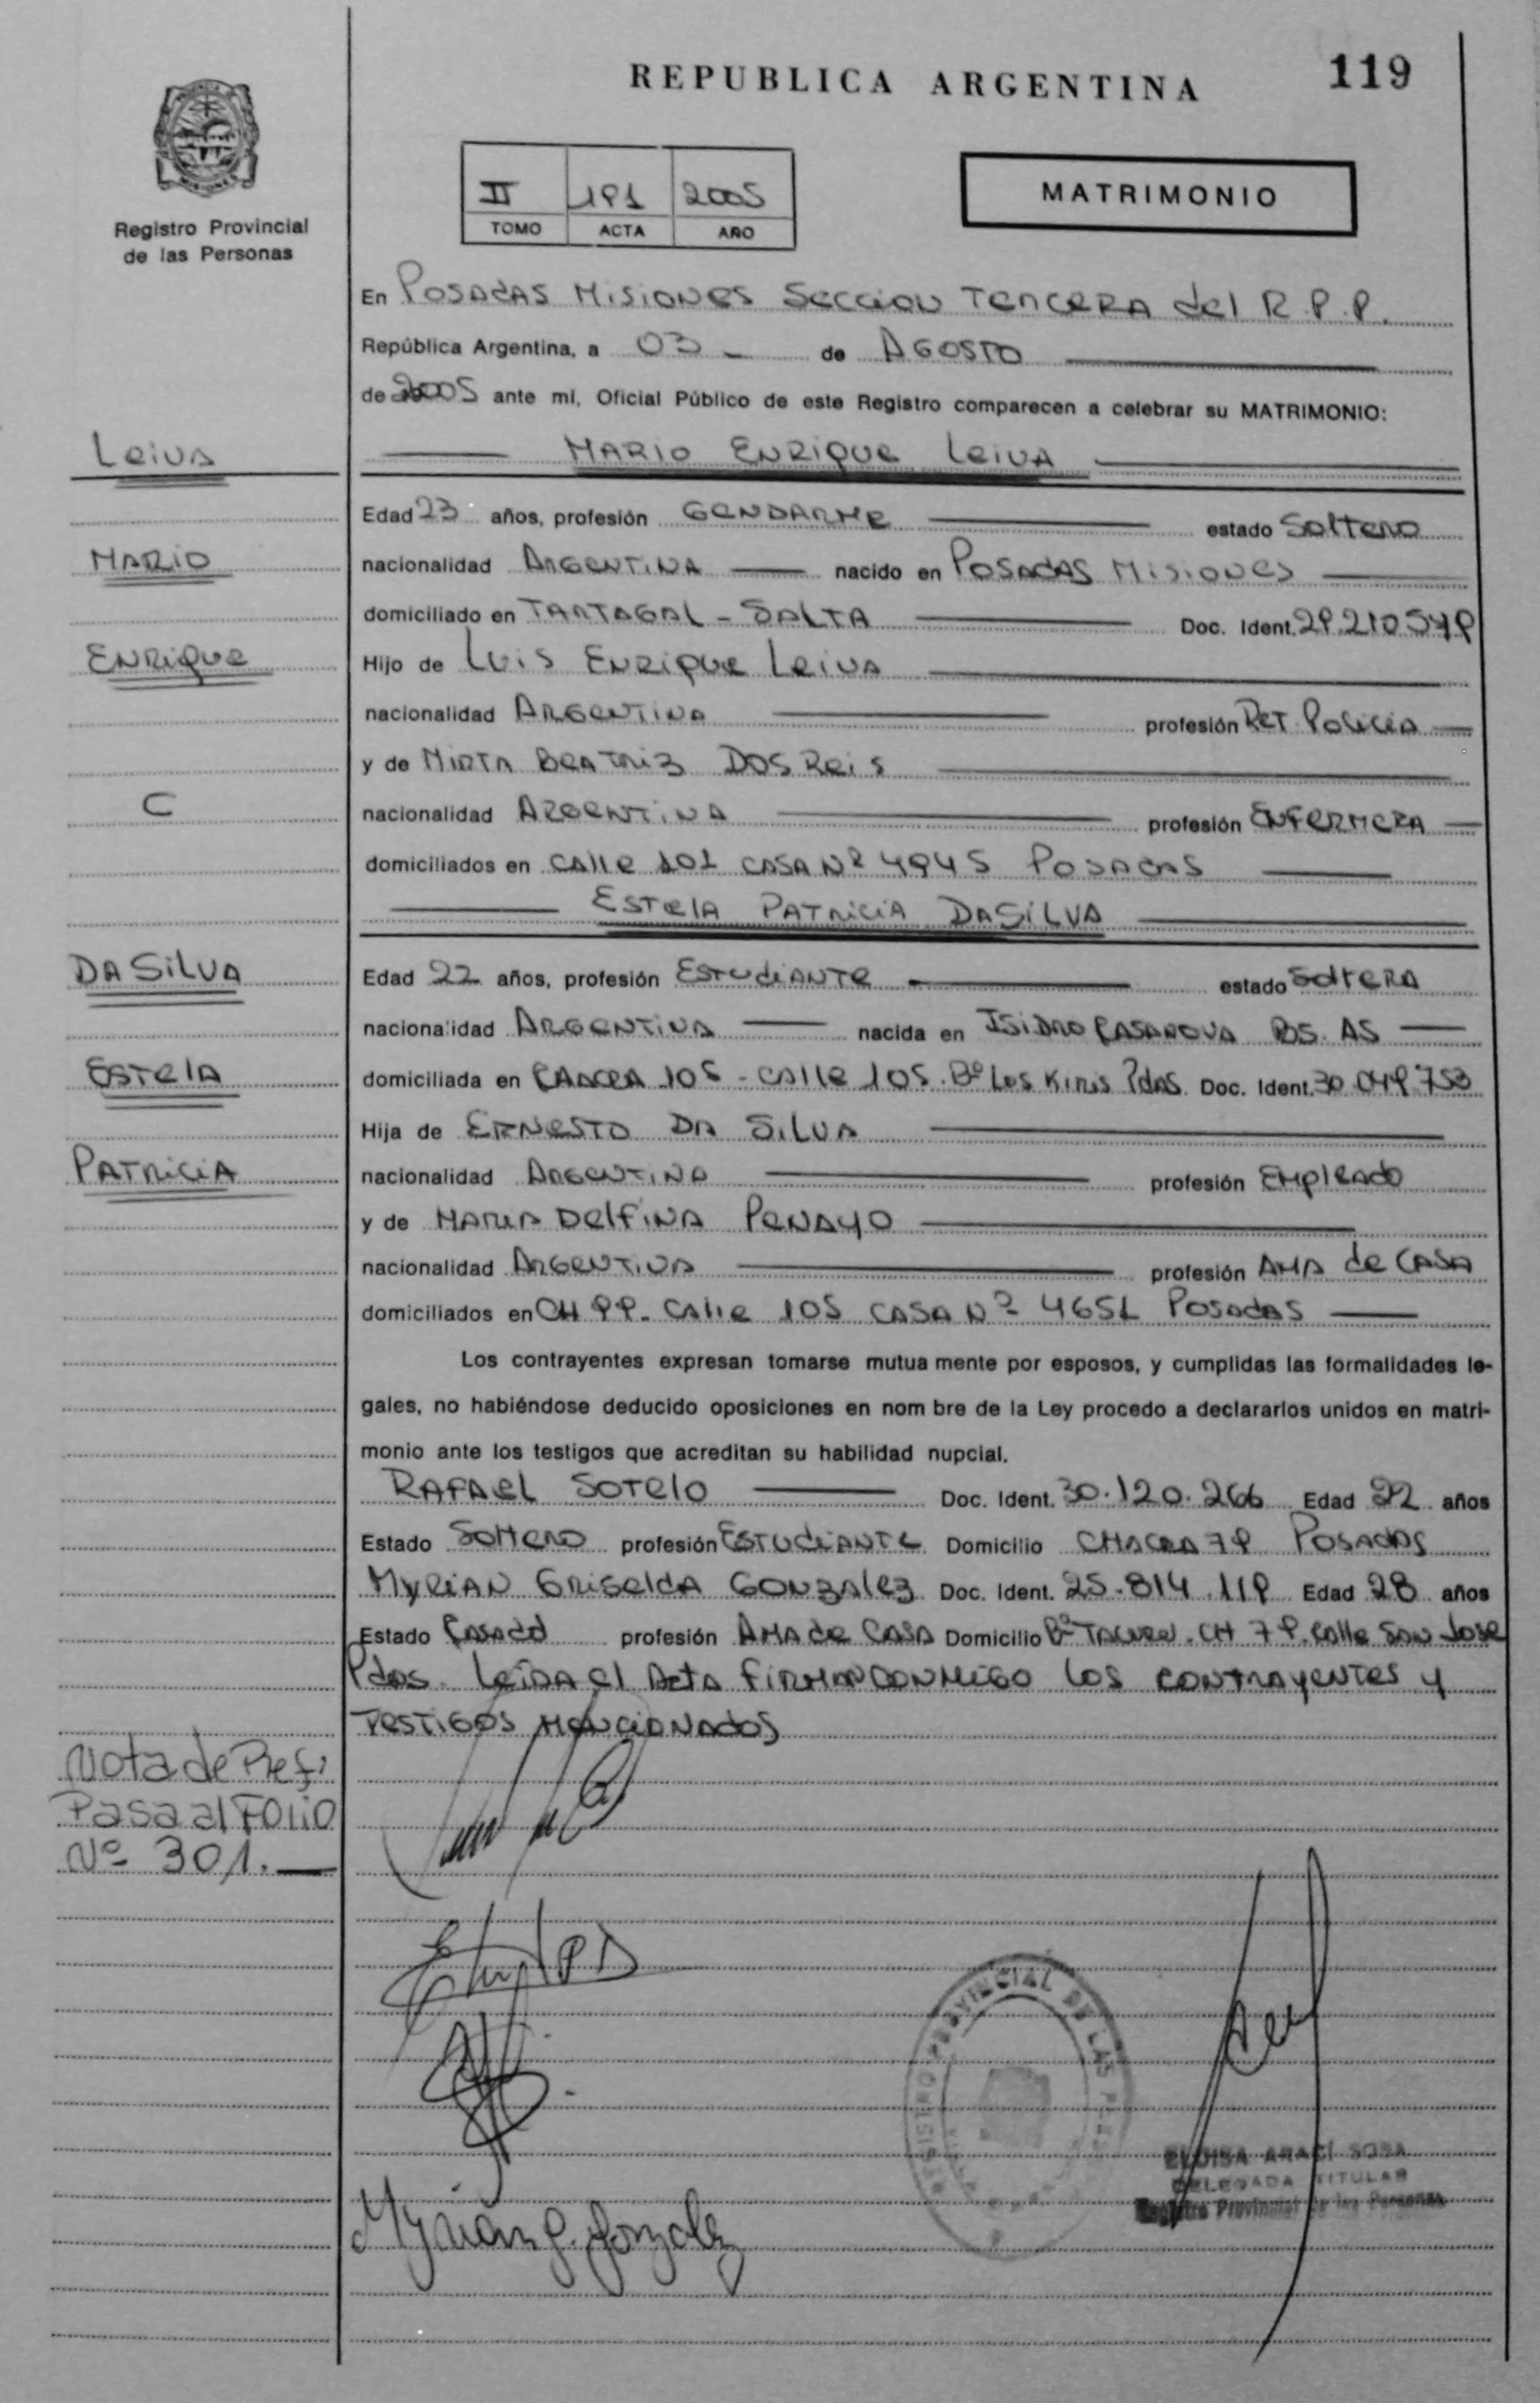 REPUBLICA ARGENTINA
119
MISIONES
Registro Provincial
de las Personas
II 191 2005
TOMO ACTA AÑO
MATRIMONIO
En POSADAS MISIONES SECCION TERCERA del R.P.P.
República Argentina, a 03 de AGOSTO
de 2005 ante mi, Oficial Público de este Registro comparecen a celebrar su MATRIMONIO:
Leiva
MARIO ENRIQUE LEIVA
Edad 23 años, profesión GENDARME estado Soltero
MARIO
nacionalidad ARGENTINA nacido en POSADAS MISIONES
domiciliado en TARTAGAL - SALTA Doc. Ident. 29.210.549
ENRIQUE
Hijo de LUIS ENRIQUE LEIVA
nacionalidad ARGENTINA profesión RET. Policia
y de MIRTA BEATRIZ DOS REIS
C
nacionalidad ARGENTINA profesión ENFERMERA
domiciliados en CALLE 101 CASA Nº 4945 POSADAS
ESTELA PATRICIA DASILVA
DA SILVA
Edad 22 años, profesión ESTUDIANTE estado SOLTERA
nacionalidad ARGENTINA nacida en ISIDRO CASANOVA BS. AS
ESTELA
domiciliada en CHACRA 105 - CALLE 105. Bº Los Kiris Pdas. Doc. Ident. 30.049.753
Hija de ERNESTO DA SILVA
PATRICIA
nacionalidad ARGENTINA profesión EMPLEADO
y de MARIA DELFINA PENAYO
nacionalidad ARGENTINA profesión AMA de CASA
domiciliados en CH 99. CALLE 105 CASA Nº 4651 POSADAS
Los contrayentes expresan tomarse mutua mente por esposos, y cumplidas las formalidades le-
gales, no habiéndose deducido oposiciones en nom bre de la Ley procedo a declararlos unidos en matri-
monio ante los testigos que acreditan su habilidad nupcial.
RAFAEL SOTELO Doc. Ident. 30.120.266 Edad 22 años
Estado SOLTERO profesión ESTUDIANTE Domicilio CHACRA 79 POSADAS
MYRIAN GRISELDA GONZALEZ Doc. Ident. 25.814.119 Edad 28 años
Estado Casado profesión AMA de CASA Domicilio Bº CH 79. Calle SAN Jose
Pdas. Leida el Acta FIRMAN CONMIGO los CONTRAYENTES y
TESTIGOS MENCIONADOS
Nota de Ref:
Pasa al FOLIO
Nº 301.
PROVINCIAL DE LAS
ELOISA ARACI SOSA
DELEGADA TITULAR
Registro Provincial de las Personas
Myrian G. Gonzalez